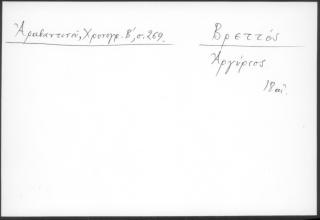 Ἀραβαντινοῦ, Χρονογρ. Β', σ. 269.
Βρεττός
Ἀργύριος
18 αἰ.